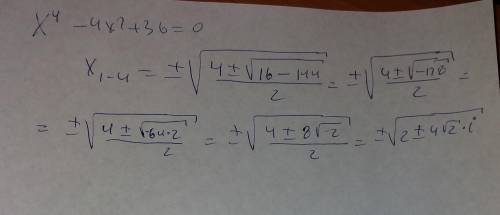 x⁴ - 4x² + 36 = 0
x₁₋₄ = ±√((4 ± √(16 - 144))/2) = ±√((4 ± √(-128))/2) =
= ±√((4 ± √(-64·2))/2) = ±√((4 ± 8√(-2))/2) = ±√(2 ± 4√2·i)